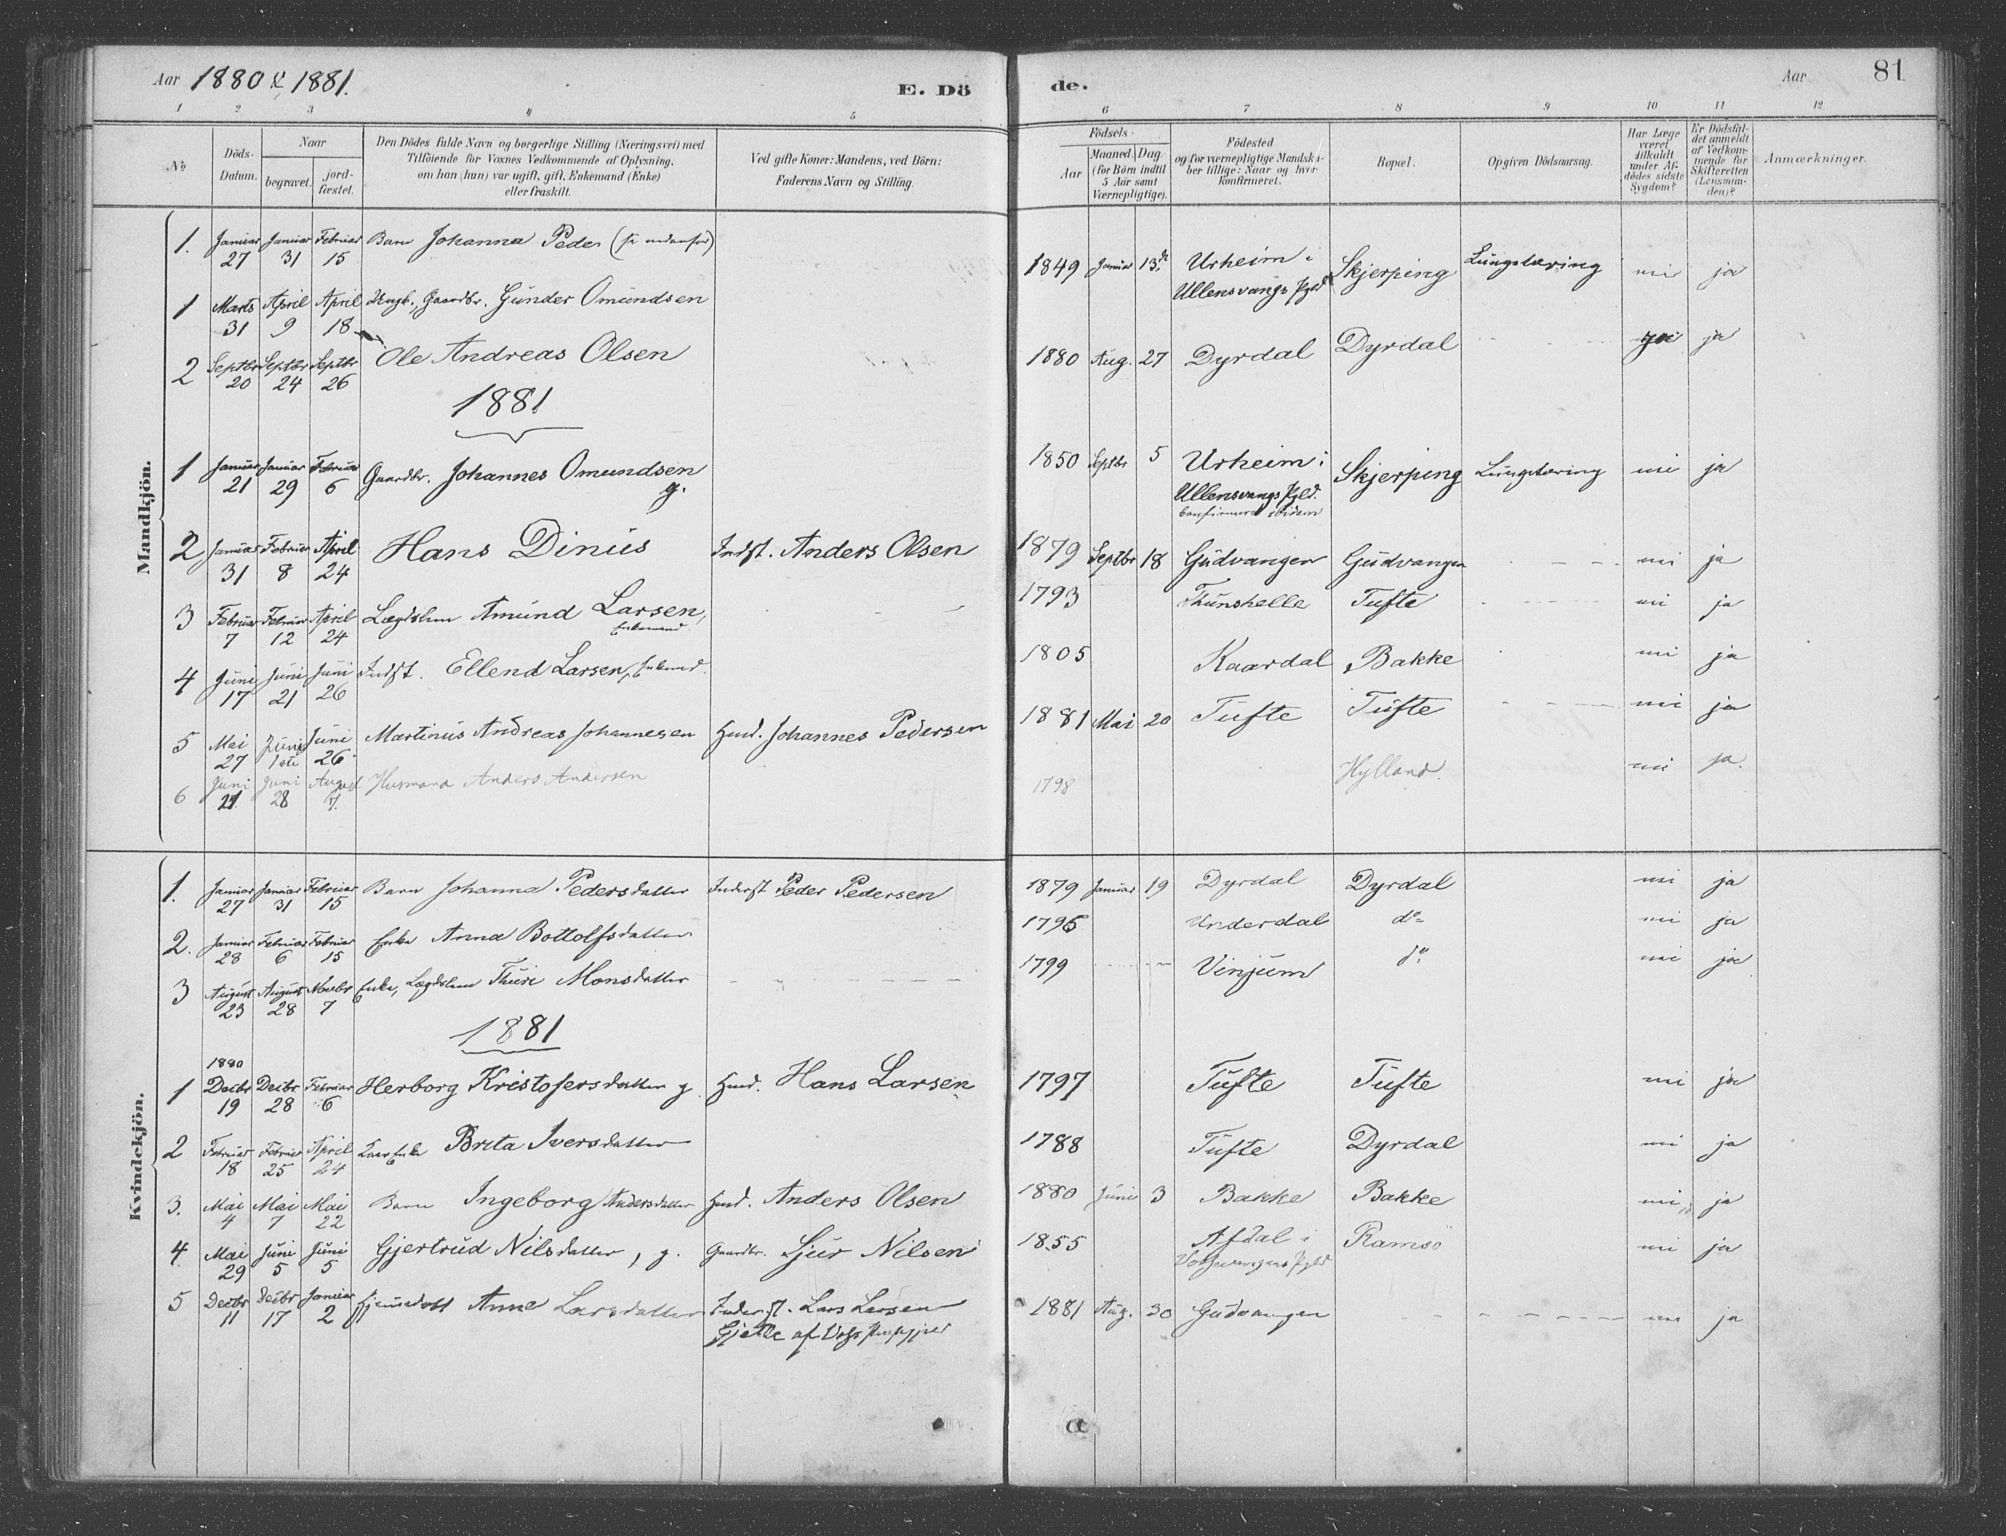 Aar 1880 & 1881.
E. Dö
de.
Aar
81
1 2 3 4 5
6 7 8 9 10 11 12
No
Döds-
Datum.
Naar
begravet.
jord-
fæstet.
Den Dödes fulde Navn og borgerlige Stilling (Næringsvei) med
Tilföiende for Voxnes Vedkommende af Oplysning,
om han (hun) var ugift, gift, Enkemand (Enke)
eller fraskilt.
Ved gifte Koner: Mandens, ved Börn:
Faderens Navn og Stilling.
Födsels-
Aar
Maaned. Dag.
(for Börn indtil
5 Aar samt
Værnepligtige).
Födested
og for værnepligtige Mandska-
ber tillige: Naar og hvor
konfirmeret.
Bopæl.
Opgiven Dödsaarsag.
Har Læge
været
tilkaldt
under Af-
dödes sidste
Sygdom?
Er Dödsfal-
det anmeldt
af Vedkom-
mende for
Skifteretten
(Lensman-
den)?
Anmærkninger.
Mandkjön.
1. Januar 27 Januar 31 Februar 15 Barn Johanna Peders (se nedenfor)
1 Marts 31 April 9 April 18 Ungk., Gaardbr. Gunder Omundsen 1849 Januar 13de Urheim i Ullensvangs Pgld Skjerping Lungetæring nei ja
2 Septbr 20 Septbr 24 Septbr 26 Ole Andreas Olsen 1880 Aug. 27 Dyrdal Dyrdal nei ja
1881
1 Januar 21 Januar 29 Februar 6 Gaardbr. Johannes Omundsen g. 1850 Septbr 5 Urheim i Ullensvangs Pgld. confirmeret ibidem Skjerping Lungetæring nei ja
2 Januar 31 Februar 8 April 24 Hans Dinius Indst. Anders Olsen 1879 Septbr 18 Gudvangen Gudvangen nei ja
3 Februar 7 Februar 12 April 24 Lægdslem Amund Larsen, Enkemand 1793 Thunshelle Tufte nei ja
4 Juni 17 Juni 21 Juni 26 Indst. Ellend Larsen, Enkemd. 1805 Kaardal Bakke nei ja
5 Mai 27 Juni 1ste Juni 26 Martinus Andreas Johannesen Husmd. Johannes Pedersen 1881 Mai 20 Tufte Tufte nei ja
6 Juni 21 Juni 28 August 7. Husmand Anders Andersen 1798 Hylland. nei ja.
Kvindekjön.
1. Januar 27 Januar 31 Februar 15 Barn Johanna Pedersdatter Inderst Peder Pedersen 1879 Januar 19 Dyrdal Dyrdal nei ja
2. Januar 28 Februar 6 Februar 15 Enke Anna Bottolfsdatter 1796 Underdal do nei ja
3 August 23 August 28 Novbr 7 Enke, Lægdslem Thuri Monsdatter 1799 Vinjum do nei ja
1881
1 1880 Decbr 19 Decbr 28 Februar 6 Herborg Kristofersdatter g. Husmd. Hans Larsen 1797 Tufte Tufte nei ja
2 Februar 18 Februar 25 April 24 Enke Brita Iversdatter 1788 Tufte Dyrdal nei ja
3. Mai 4 Mai 7 Mai 22 Barn Ingeborg Andersdatter Husmd. Anders Olsen 1880 Juni 3 Bakke Bakke nei ja
4. Mai 29 Juni 5 Juni 5 Gjertrud Nilsdatter, g. Gaardbr. Sjur Nilsen 1855 Afdal i Vossevangens Pgld Ramsö nei ja
5 Decbr 11 Decbr 17 Januar 2 hjemmedöbt Anna Larsdatter Inderst. Lars Larsen Gjelle af Voss Præstegjeld 1881 Aug. 30 Gudvangen nei ja